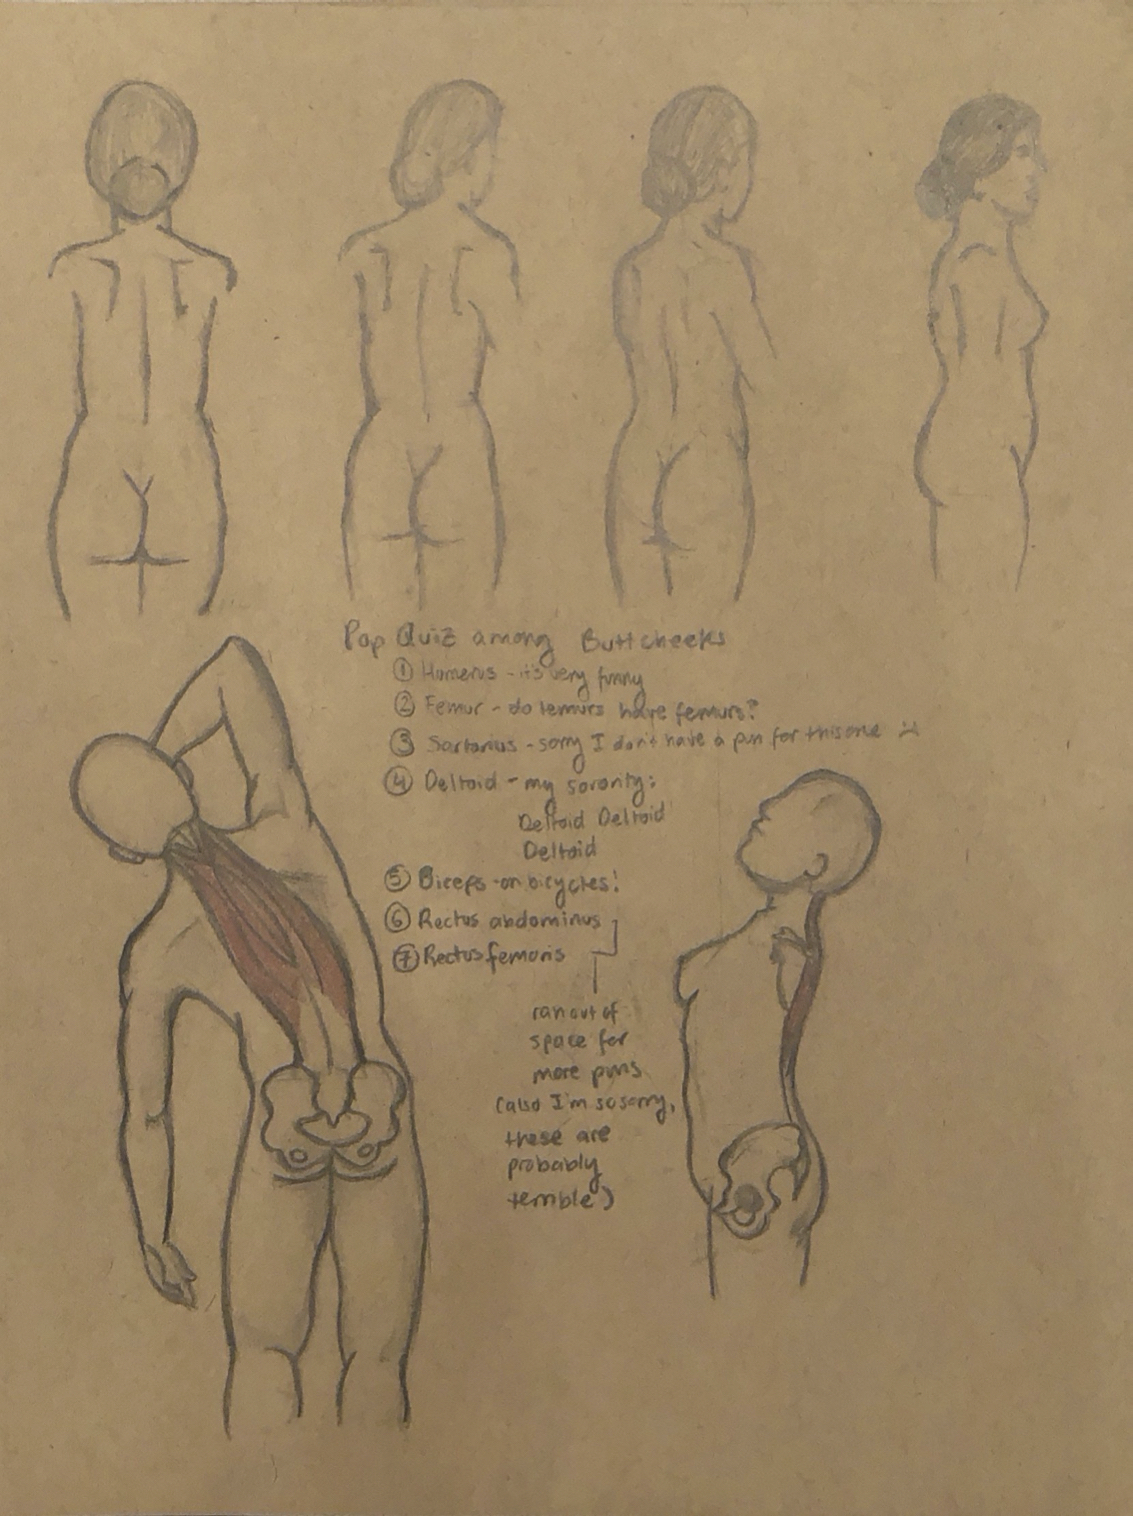 Pop Quiz among Buttcheeks
① Humerus - it's very funny
② Femur - do lemurs have femurs?
③ Sartorius - sorry I don't have a pun for this one :(
④ Deltoid - my sorority:
Deltoid Deltoid
Deltoid
⑤ Biceps - on bicycles!
⑥ Rectus abdominus
⑦ Rectus femoris
ran out of
space for
more puns
(also I'm so sorry,
these are
probably
terrible)